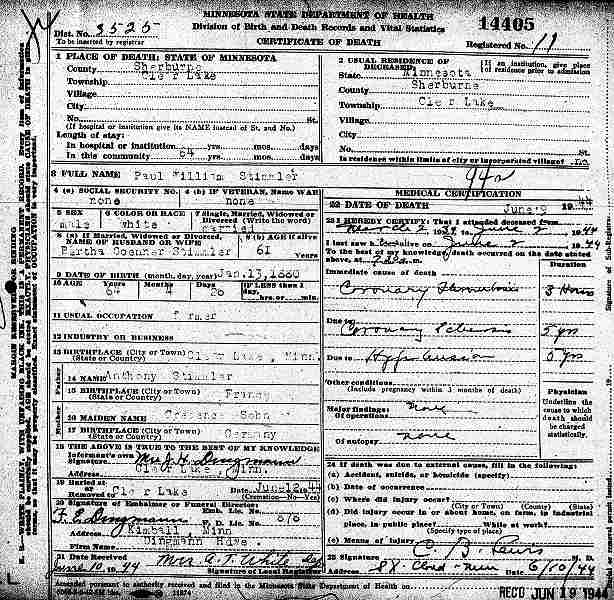 MINNESOTA STATE DEPARTMENT OF HEALTH
Division of Birth and Death Records and Vital Statistics
CERTIFICATE OF DEATH
14405
Dist. No. 3525
To be inserted by registrar
Registered No. 19
1 PLACE OF DEATH: STATE OF MINNESOTA
County Sherburne
Township Clear Lake
Village
City
No. St.
(If hospital or institution give its NAME instead of St. and No.)
Length of stay:
In hospital or institution yrs. mos. days
In this community 64 yrs. mos. days
2 USUAL RESIDENCE OF DECEASED:
(If an institution, give place of residence prior to admission)
State Minnesota
County Sherburne
Township Clear Lake
Village
City
No. St.
Is residence within limits of city or incorporated village? no
3 FULL NAME Paul William Stimmler
94a
4 (a) SOCIAL SECURITY NO. none
4 (b) IF VETERAN, NAME WAR none
5 SEX male
6 COLOR OR RACE white
7 Single, Married, Widowed or Divorced (Write the word) married
8 (a) If Married, Widowed or Divorced, NAME OF HUSBAND OR WIFE
Bertha Goenner Stimmler
8 (b) AGE if alive 61 Years
9 DATE OF BIRTH (month, day, year) Jan. 13, 1880
10 AGE Years 64 Months 4 Days 26 IF LESS than 1 day, hrs. or min.
11 USUAL OCCUPATION Farmer
12 INDUSTRY OR BUSINESS
13 BIRTHPLACE (City or Town) (State or Country) Clear Lake, Minn.
Father
14 NAME Anthony Stimmler
15 BIRTHPLACE (City or Town) (State or Country) France
Mother
16 MAIDEN NAME Sohn
17 BIRTHPLACE (City or Town) (State or Country) Germany
18 THE ABOVE IS TRUE TO THE BEST OF MY KNOWLEDGE
Informant's own Signature Mrs. J. H. Dingmann
Clear Lake, Minn.
19 Buried at or Removed to Clear Lake Date June 12, 44
(Cremation—No—Yes)
20 Signature of Embalmer or Funeral Director: Emb. Lic. No.
F. E. Dingmann F. D. Lic. No. 676
Kimball Minn
Dingmann Hdwe.
Firm Name
21 Date Received June 10, 44 Mrs. A. T. White
Signature of Local Registrar
MEDICAL CERTIFICATION
22 DATE OF DEATH June 9 1944
23 I HEREBY CERTIFY: That I attended deceased from
March 2 1939 to June 2 1944
I last saw h alive on June 2 1944
To the best of my knowledge death occurred on the date stated above, at
Duration
Immediate cause of death
Coronary Thrombosis 3 Hours
Due to Coronary Sclerosis 5 yrs
Due to Hypertension yrs
Other conditions
(Include pregnancy within 3 months of death)
Major findings:
Of operations none
Of autopsy none
Physician
Underline the cause to which death should be charged statistically.
24 If death was due to external cause, fill in the following:
(a) Accident, suicide, or homicide (specify)
(b) Date of occurrence
(c) Where did injury occur?
(City or Town) (County) (State)
(d) Did injury occur in or about home, on farm, in industrial place, in public place? While at work?
(Specify type of place)
(e) Means of injury
25 Signature
St. Cloud - Minn Date 6/10/44
Amended pursuant to authority received and filed in the Minnesota State Department of Health
REC'D JUN 19 1944